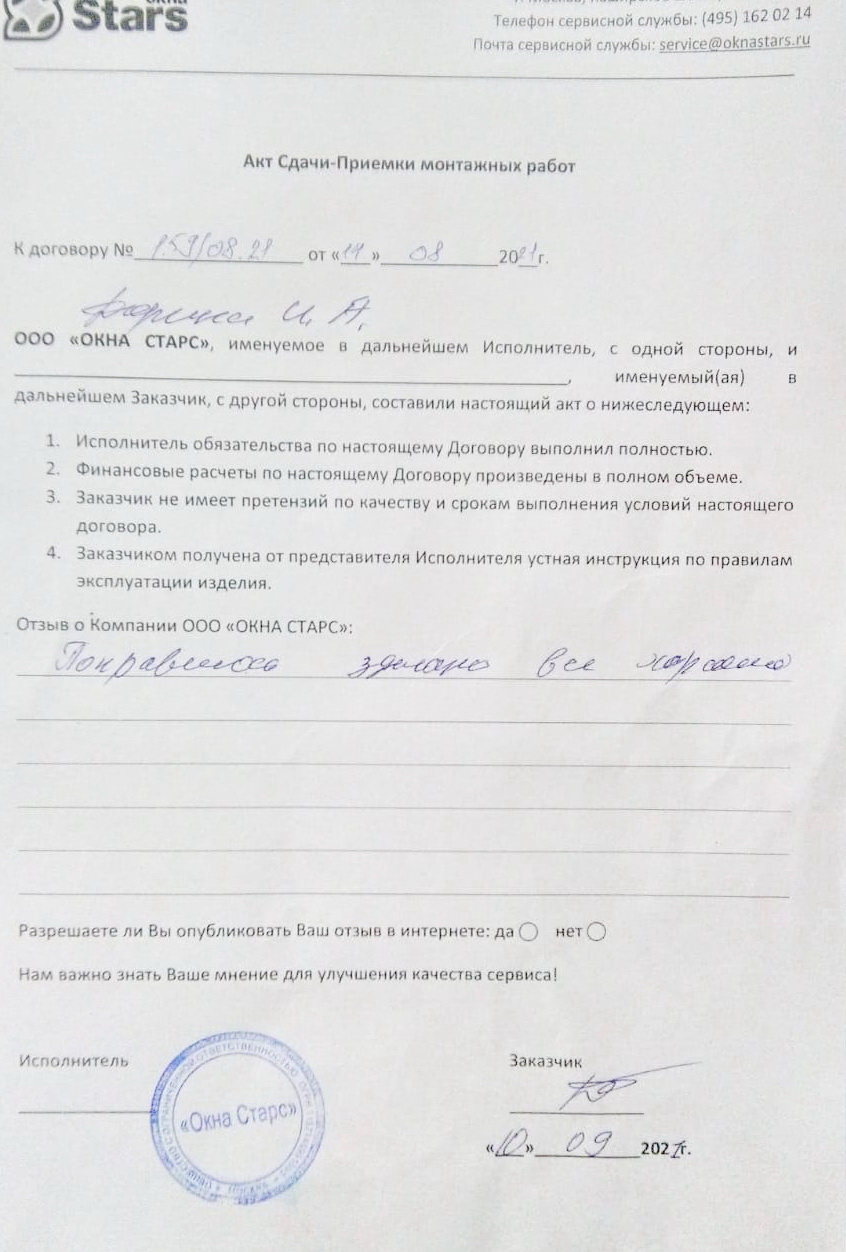 окна
Stars
Телефон сервисной службы: (495) 162 02 14
Почта сервисной службы: service@oknastars.ru
Акт Сдачи-Приемки монтажных работ
К договору № 159/08.21 от «11» 08 2021г.
И. А.
ООО «ОКНА СТАРС», именуемое в дальнейшем Исполнитель, с одной стороны, и
, именуемый(ая) в
дальнейшем Заказчик, с другой стороны, составили настоящий акт о нижеследующем:
1. Исполнитель обязательства по настоящему Договору выполнил полностью.
2. Финансовые расчеты по настоящему Договору произведены в полном объеме.
3. Заказчик не имеет претензий по качеству и срокам выполнения условий настоящего
договора.
4. Заказчиком получена от представителя Исполнителя устная инструкция по правилам
эксплуатации изделия.
Отзыв о Компании ООО «ОКНА СТАРС»:
Понравилось зделано все хорошо
Разрешаете ли Вы опубликовать Ваш отзыв в интернете: да нет
Нам важно знать Ваше мнение для улучшения качества сервиса!
Исполнитель
Заказчик
ОБЩЕСТВО С ОГРАНИЧЕННОЙ ОТВЕТСТВЕННОСТЬЮ
«Окна Старс»
«10» 09 2021г.